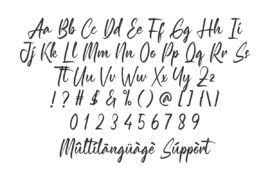 Aa Bb Cc Dd Ee Ff Gg Hh Ii
Jj Kk Ll Mm Nn Oo Pp Qq Rr Ss
Tt Uu Vv Ww Xx Yy Zz
! ? # $ & % ( ) @ [ ] { \ }
0 1 2 3 4 5 6 7 8 9
Mûltîlãngüàgè Súppòrt